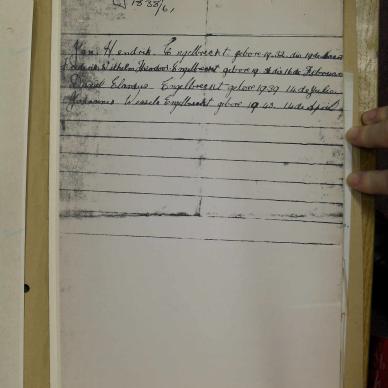 1838/61
Jan Hendrik Engelbrecht gebore 1932 den 19de
Wilhelm Theodor Engelbrecht gebore 19 den 16de Februarie
Daniel Elardus Engelbrecht gebore 1939 14 de Julie
Johannes Wessels Engelbrecht gebore 1943. 14 de April